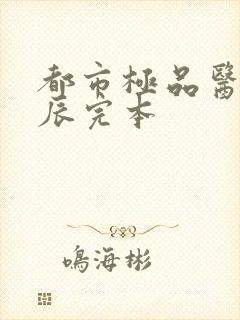 都市極品醫
辰完本
鳴海彬